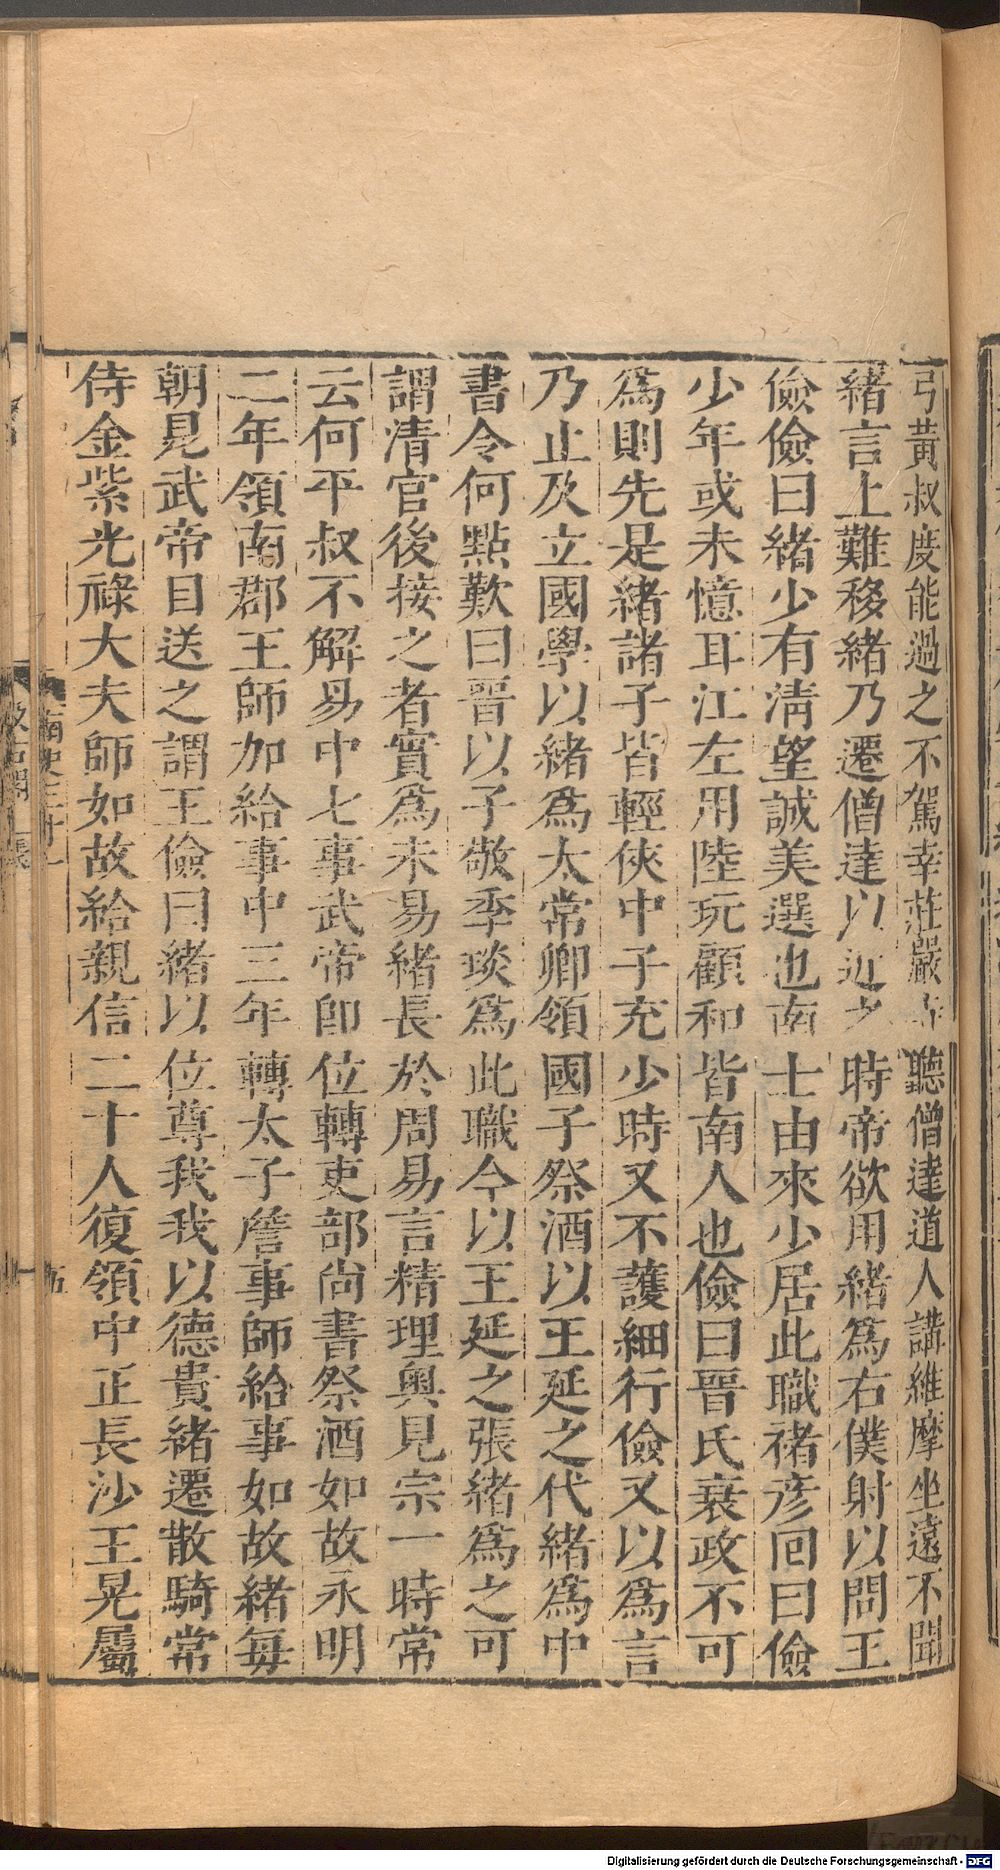 弓黃叔度能過之不駕幸莊嚴寺聽僧達道人講維摩坐遠不聞
緒言上難移緒乃遷僧達以近之時帝欲用緒為右僕射以問王
儉儉曰緒少有清望誠美選也南士由來少居此職褚彥回曰儉
少年或未憶耳江左用陸玩顧和皆南人也儉曰晉氏衰政不可
為則先是緒諸子皆輕俠中子充少時又不護細行儉又以為言
乃止及立國學以緒為太常卿領國子祭酒以王延之代緒為中
書令何點歎曰晉以子敬季琰為此職今以王延之張緒為之可
謂清官後接之者實為未易緒長於周易言精理奧見宗一時常
云何平叔不解易中七事武帝即位轉吏部尚書祭酒如故永明
二年領南郡王師加給事中三年轉太子詹事師給事如故緒每
朝見武帝目送之謂王儉曰緒以位尊我我以德貴緒遷散騎常
侍金紫光祿大夫師如故給親信二十人復領中正長沙王晃屬
南史三十一
五
汲古閣
張
Digitalisierung gefördert durch die Deutsche Forschungsgemeinschaft - DFG